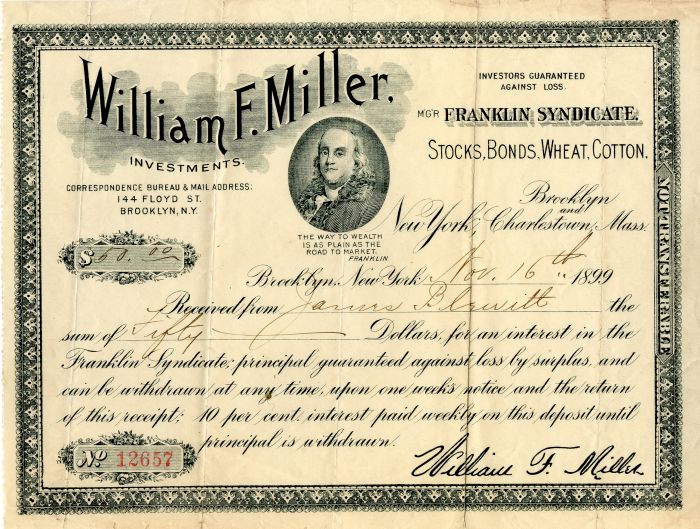 William F. Miller.
INVESTMENTS.
CORRESPONDENCE BUREAU & MAIL ADDRESS:
144 FLOYD ST.
BROOKLYN, N.Y.
INVESTORS GUARANTEED
AGAINST LOSS.
M'G'R FRANKLIN SYNDICATE.
STOCKS, BONDS, WHEAT, COTTON.
THE WAY TO WEALTH
IS AS PLAIN AS THE
ROAD TO MARKET.
FRANKLIN.
Brooklyn
and
New York, Charlestown, Mass.
$50.00
Brooklyn, New York Nov. 16th 1899
Received from James Blewitt the
sum of Fifty Dollars, for an interest in the
Franklin Syndicate; principal guaranteed against loss by surplus, and
can be withdrawn at any time, upon one weeks notice and the return
of this receipt; 10 per cent. interest paid weekly on this deposit until
principal is withdrawn.
No 12657
William F. Miller
NOT TRANSFERABLE